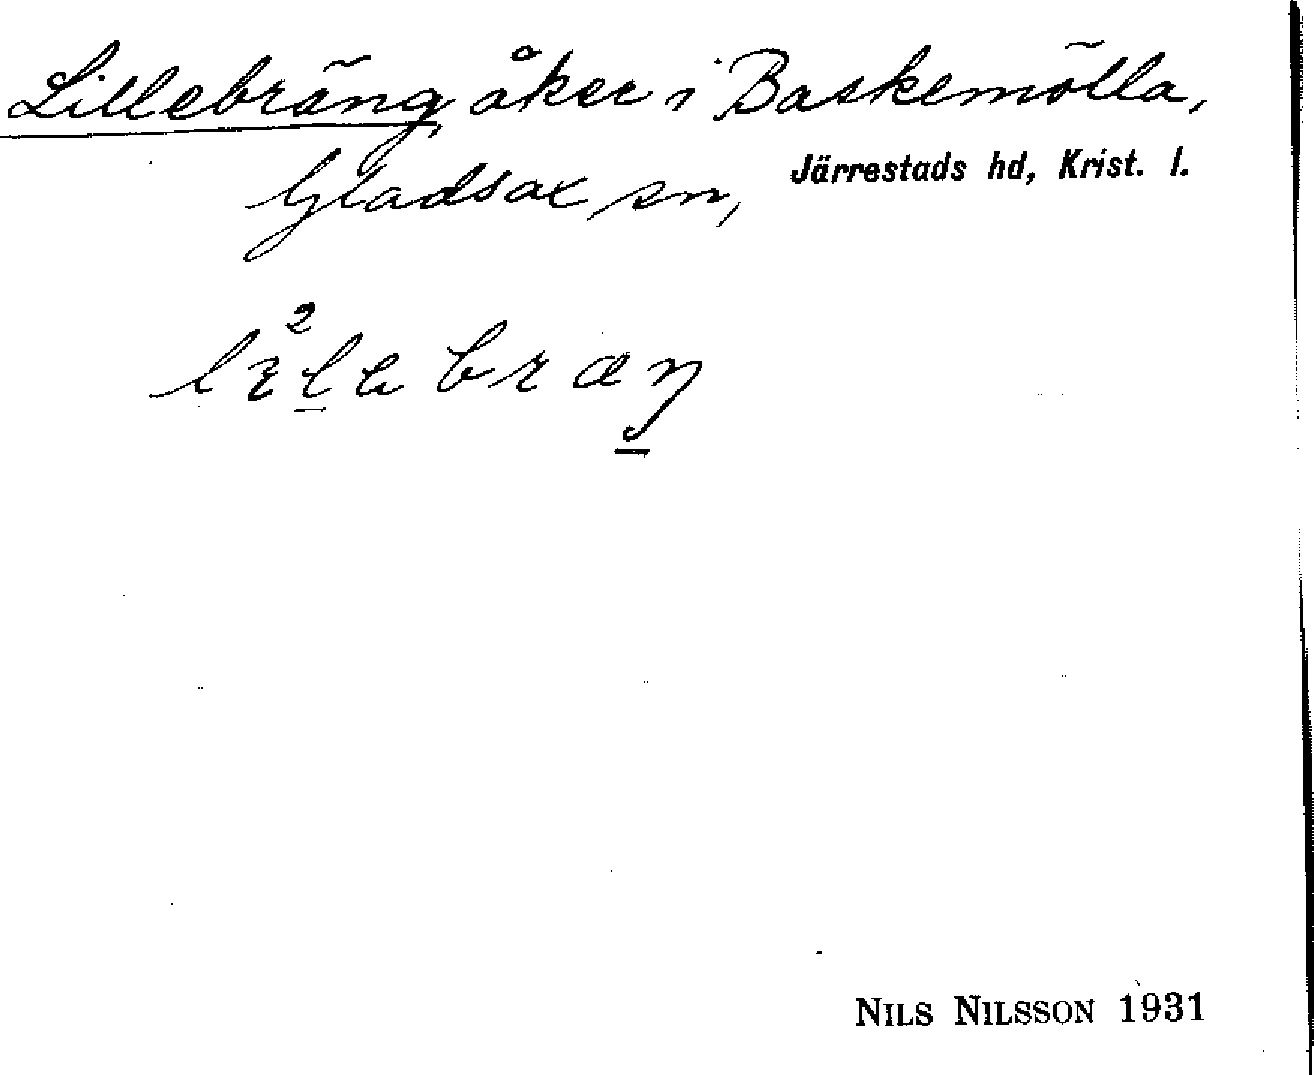 Lillebräng åker i Baskemölla,
Gladsax sn, Järrestads hd, Krist. l.
NILS NILSSON 1931